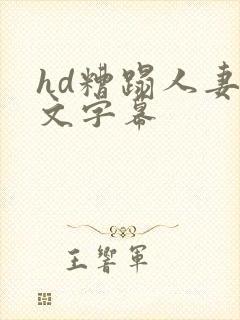 hd糟蹋人妻
文字幕
王响军